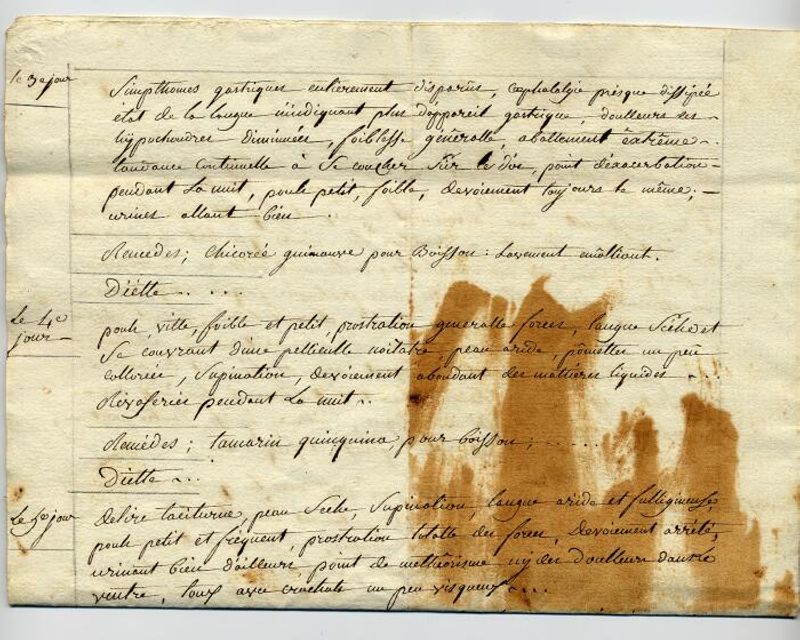 le 3e jour
Simpthomes gastriques entierement disparus, cephalalgie presque dissipée
état de la langue n'indiquant plus d'appareil gastrique, doulleurs des
hypochondres diminuées, foiblesse géneralle, abattement extrême
tandance continuelle à se coucher sur le dos, point d'exacerbation
pendant la nuit, pouls petit, foible, devoiement toujours le même,
urines allant bien.
Remedes; Chicorée guimauve pour Boisson: Lavement emolliant.
Diètte
Le 4e
jour
pouls, foible et petit, prostration generalle forces, langue Sèche et
Se couvrant d'une pellicule noitatre, peau aride, pomettes un peu
collorées, Supination, devoiement abondant des matières liquides
Revaseries pendant la nuit
Remèdes; tamarin quinquina, pour boisson;
Diette
Le 5e jour
Delire taciturne, peau Seche, Supination, langue aride et fulligineuse,
pouls petit et fréquent, prostration totalle des forces, Devoiement arrêté,
urinant bien d'ailleurs, point de methéorisme ny des Doulleurs dans le
ventre, toux avec crachats un peu visqueux